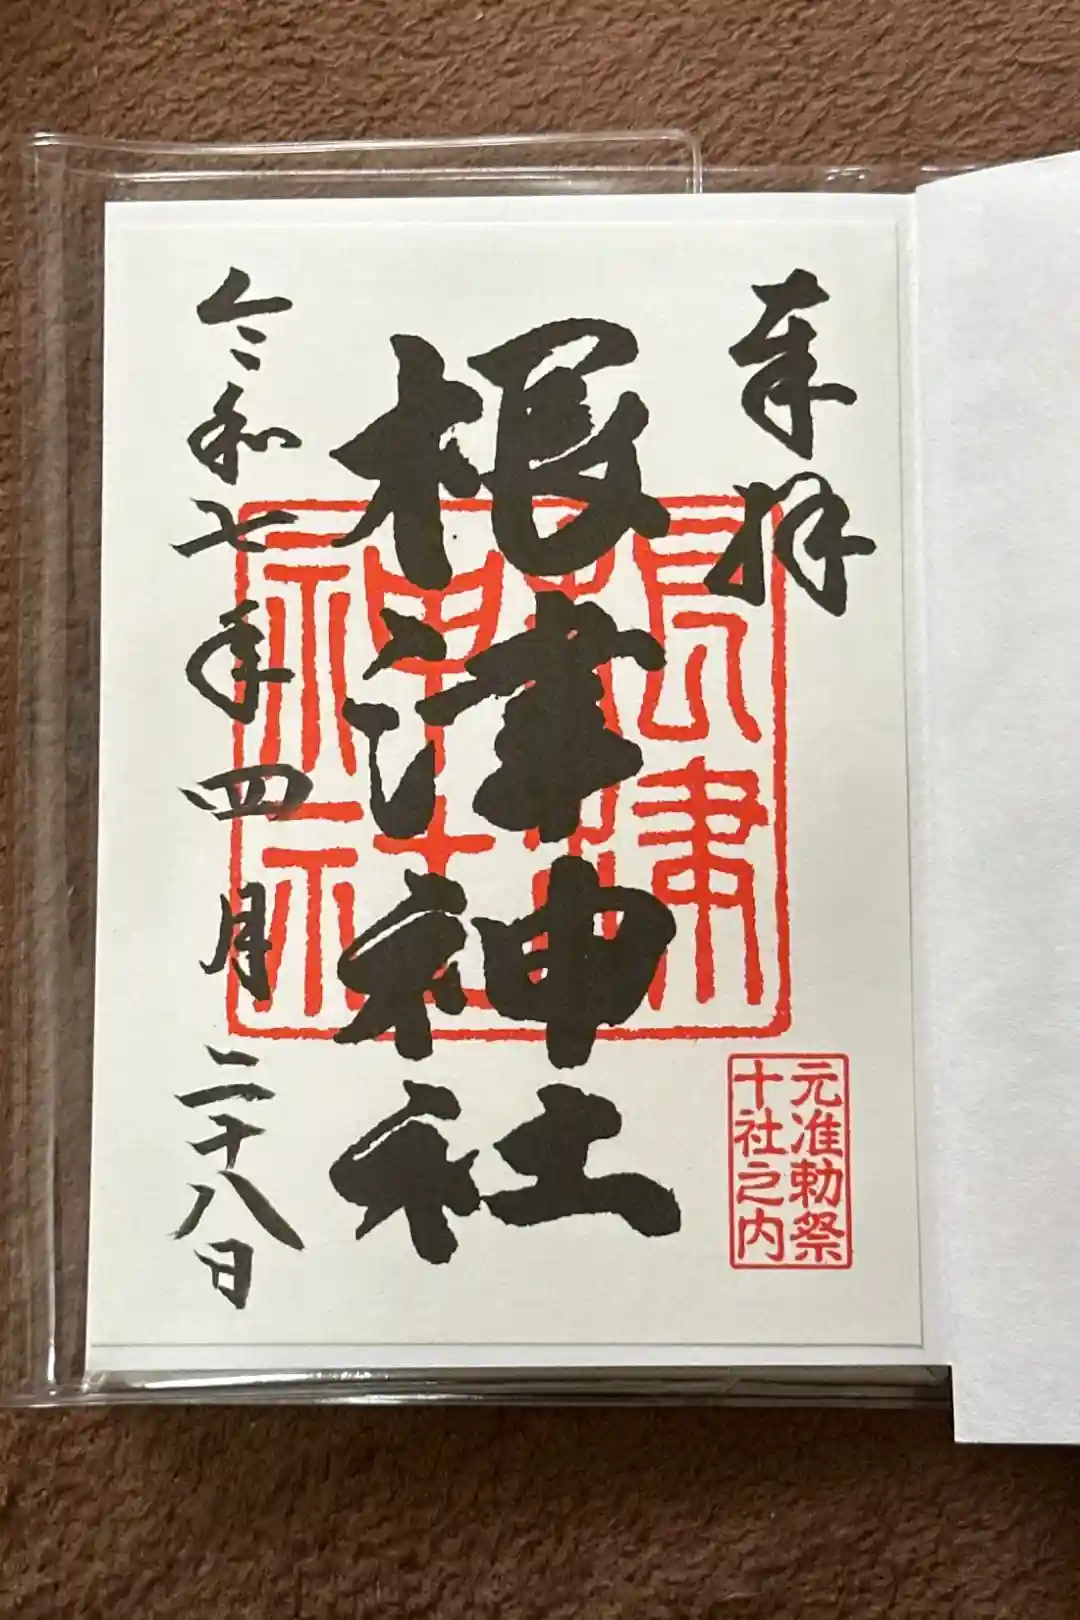 奉拝
根津神社
令和七年四月二十八日
元准勅祭
十社之内